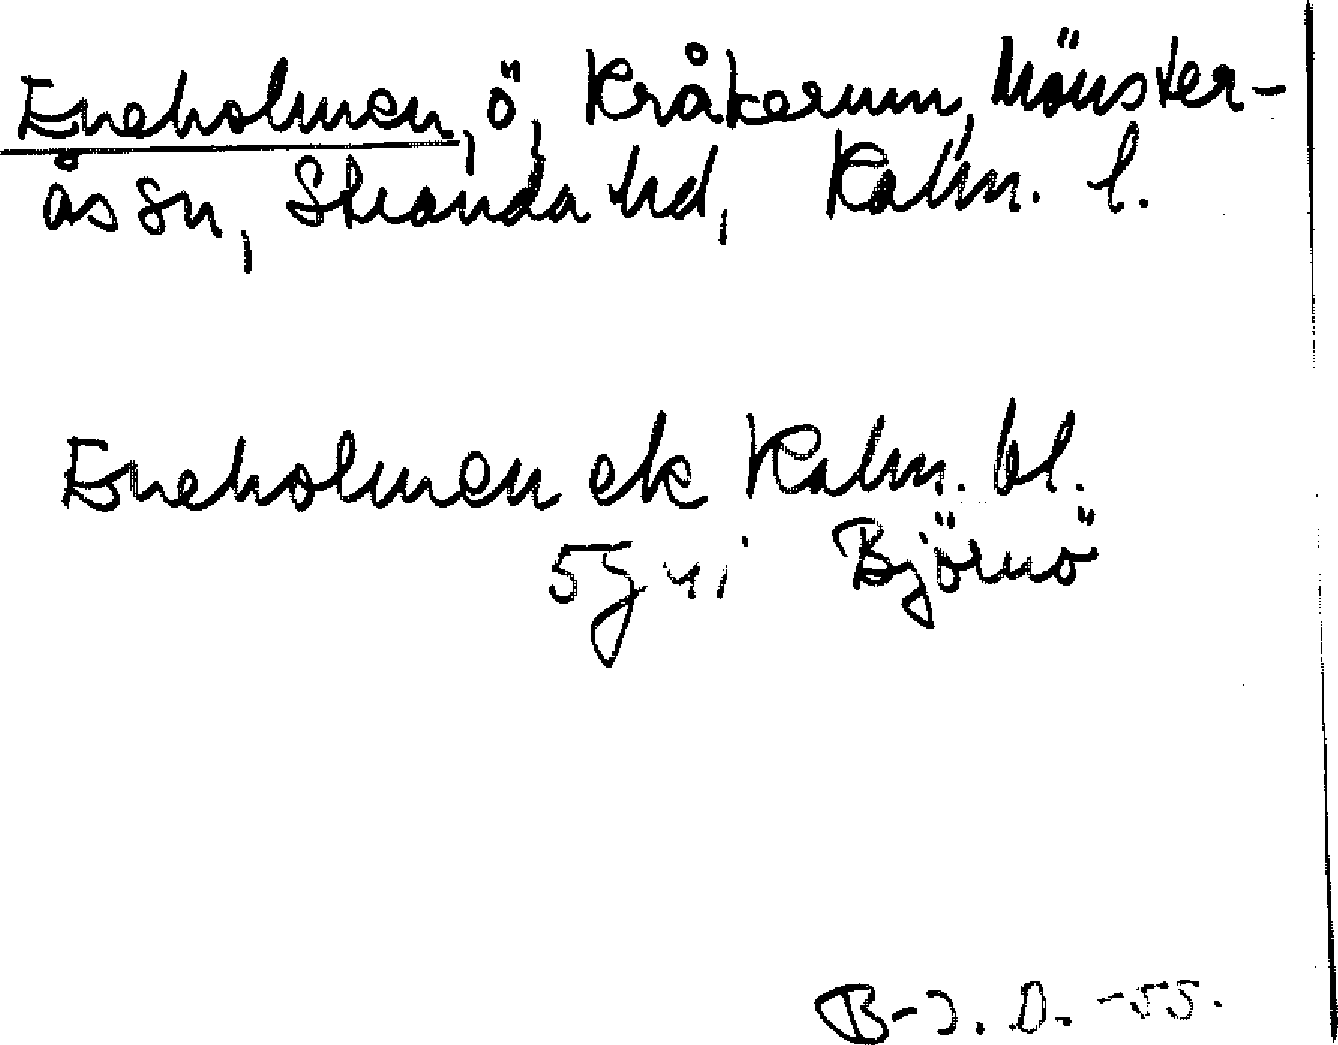 Eneholmen, ö, Kråkerum, Mönster-
ås sn, Stranda hd, Kalm. l.
Eneholmen ek Kalm. bl.
Björnö
B-J. D. -55.